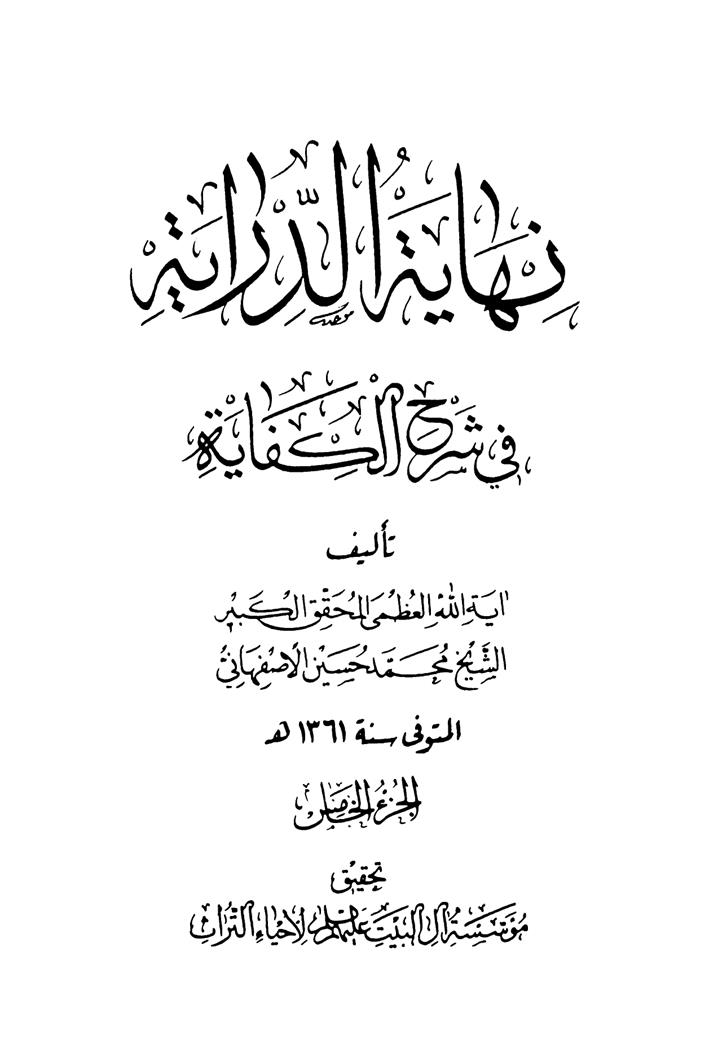 نِهَايَةُ الدِّرَايَةِ
في شَرْحِ الْكِفَايَةِ
تأليف
آية الله العُظْمَى المُحَقِّق الكَبير
الشَّيْخ مُحَمَّد حُسَيْن الأصْفَهَانيّ
المتوفى سنة ١٣٦١ هـ
الجُزْءُ الخَامِسُ
تحقيق
مُؤَسَّسَةُ آلِ البَيْتِ عَلَيْهِمُ السَّلام لإحْيَاءِ التُّرَاثِ